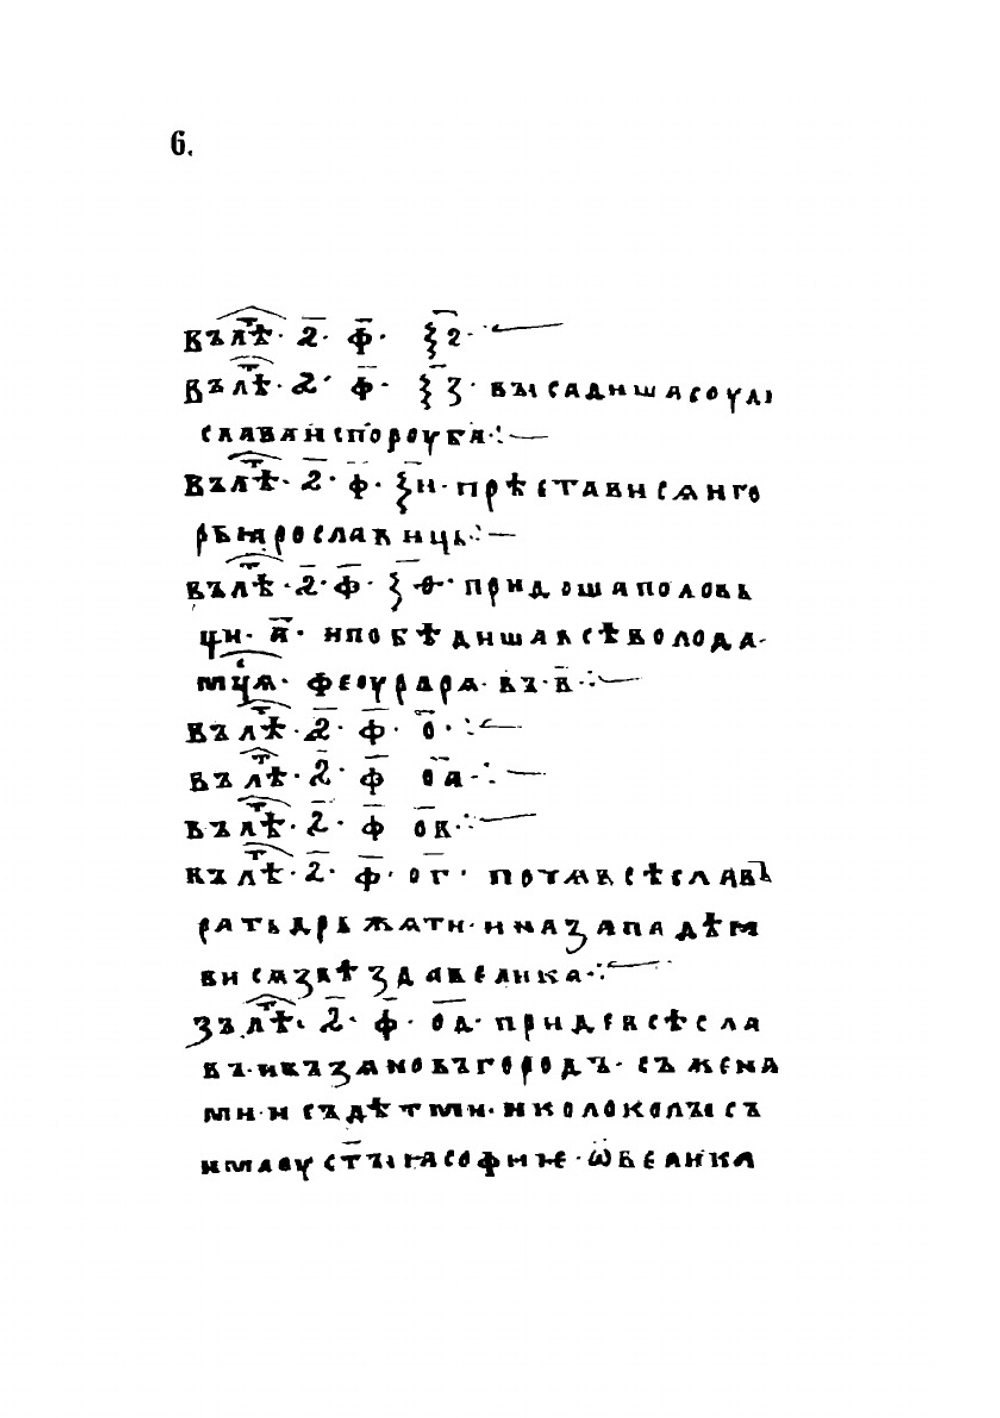 6.
въ лѣ̑т · ꙅ҃ · ф҃ · ѯ҃ꙅ ·
въ лѣ̑т · ꙅ҃ · ф҃ · ѯ҃з · въісадишасоудı
славанспороуба ·:
въ лѣ̑т · ꙅ҃ · ф҃ · ѯ҃н · прѣстависѧиго
рьꙗрославиць ·:
въ лѣ̑т · ꙅ҃ · ф҃ · ѯ҃ѳ · придошаполовь
ци · а҃ · ипобѣдишавсѣволода ·
мцⷭ҇ѧ · феоурарѧ · въ · в҃ ·:
въ лѣ̑т · ꙅ҃ · ф҃ · о҃ ·:
въ лѣ̑т · ꙅ҃ · ф҃ о҃а ·:
въ лѣ̑т · ꙅ҃ · ф҃ о҃в ·:
въ лѣ̑т · ꙅ҃ · ф҃ · о҃г · потѧвсѣславъ
ратьдрьжати · иназападѣѩ
висѧзвѣздавелика ·:
зъ лѣ̑т · ꙅ҃ · ф҃ · о҃д · придевсѣсла
въ · ивъзановъгородъ · съжена
ми · исъдѣтми · иколоколъісъ
имаоус҃тъıꙗсофиѥ · ѡвелика